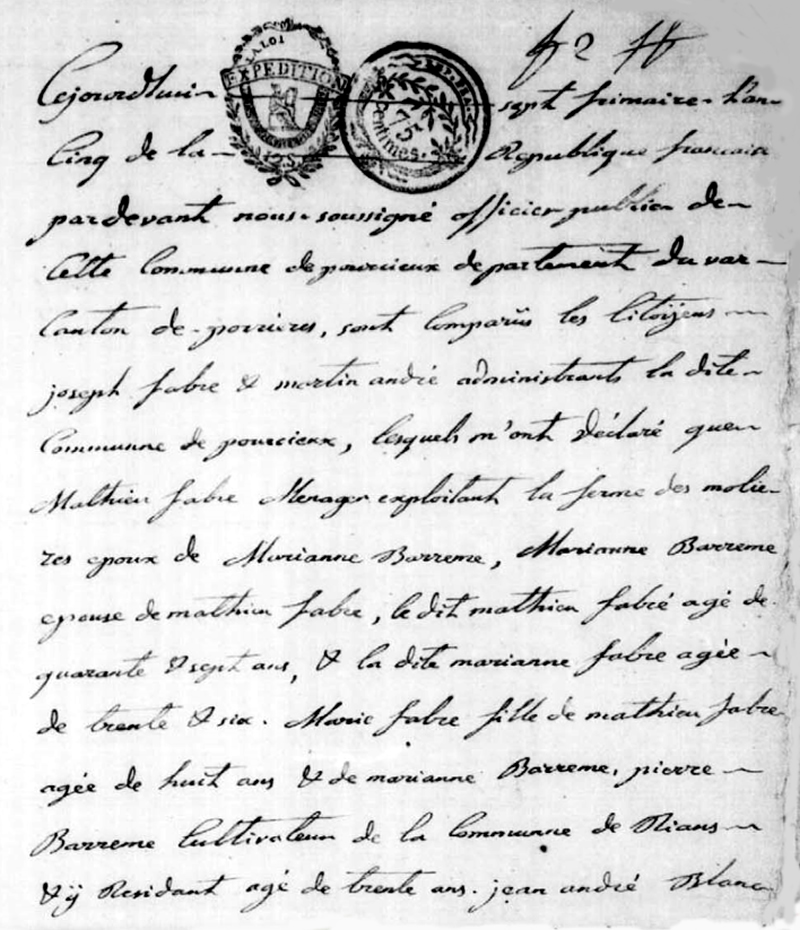 LA LOI
EXPEDITION
75
centimes.
f 2 ff
Cejourdhui sept frimaire l'an
Cinq de la Republique francaise
pardevant nous soussigné officier public de
Cette Communne de pourcieux departement du var
Canton de porrieres, sont Comparüs les Citoÿens
joseph fabre & martin andré administrants la dite
Communne de pourcieux, lesquels m'ont déclaré que
Mathieu fabre Menager exploitant la ferme des molie-
res epoux de Marianne Barreme, Marianne Barreme
epouse de mathieu fabre, le dit mathieu fabré agé de
quarante & sept ans, & la dite marianne fabre agée
de trente & six. Marie fabre fille de mathieu fabre
agée de huit ans & de marianne Barreme, pierre
Barreme Cultivateur de la Communne de Rians
& ÿ Residant agé de trente ans. jean andré Blanc